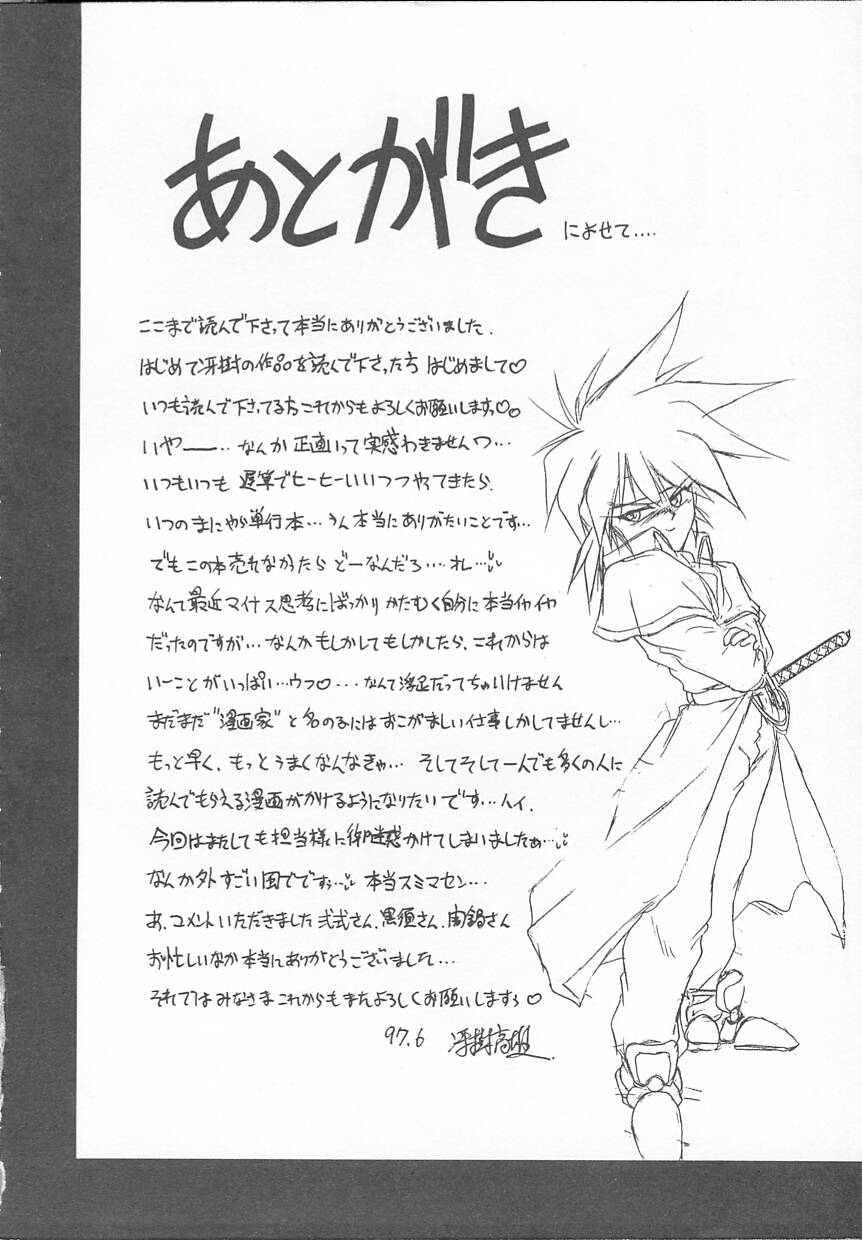 あとがき によせて‥‥
ここまで読んで下さって本当にありがとうございました.
はじめて冴樹の作品を読んで下さった方 はじめまして♡
いつも読んで下さってる方これからもよろしくお願いします♡
いやー‥なんか正直いって実感わきませんワ…
いつもいつも 遅筆でヒーヒーいいつつやってきたら.
いつのまにやら単行本…うん本当にありがたいことです…
でもこの本売れなかったら どーなんだろ‥‥オレ…
なんて最近マイナス思考にばっかりかたむく自分に本当イヤイヤ
だったのですが…なんかもしかしてもしかしたら、これからは
いーことがいっぱい…ウフ♡…なんて浮足だってちゃいけません
まだまだ"漫画家"と名のるにはおこがましい仕事しかしてませんし…
もっと早く、もっとうまくなんなきゃ… そしてそして一人でも多くの人に
読んでもらえる漫画がかけるようになりたいです…ハイ.
今回はまたしても担当様に御迷惑かけてしまいましたぁ…
なんか外すごい風でですぅ… 本当スミマセン…
あ、コメントいただきました 弐式さん、黒須さん、闇鍋さん
お忙しいなか本当にありがとうございました…
それではみなさまこれからもまたよろしくお願いしますぅ♡
97.6 冴樹高雄